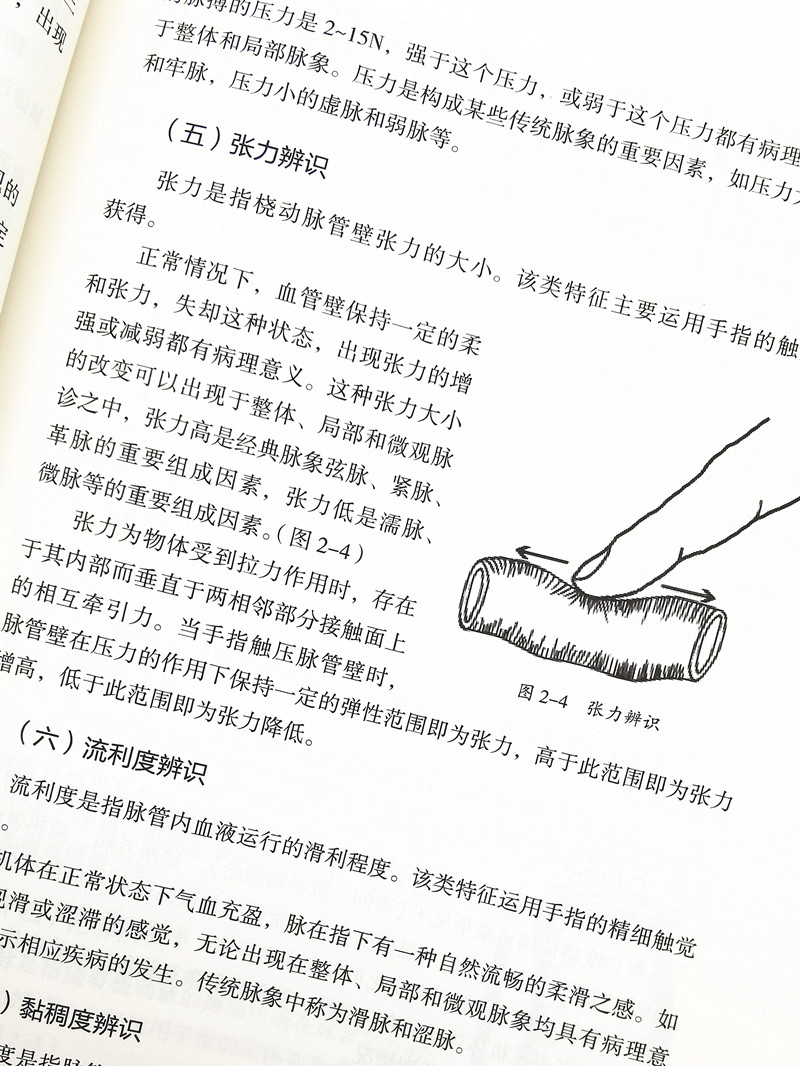 出现
脉搏的压力是 2~15N，强于这个压力，或弱于这个压力都有病理
于整体和局部脉象。压力是构成某些传统脉象的重要因素，如压力大
和牢脉，压力小的虚脉和弱脉等。
（五）张力辨识
张力是指桡动脉管壁张力的大小。该类特征主要运用手指的触
获得。
正常情况下，血管壁保持一定的柔
和张力，失却这种状态，出现张力的增
强或减弱都有病理意义。这种张力大小
的改变可以出现于整体、局部和微观脉
诊之中，张力高是经典脉象弦脉、紧脉、
革脉的重要组成因素，张力低是濡脉、
微脉等的重要组成因素。（图 2-4）
张力为物体受到拉力作用时，存在
于其内部而垂直于两相邻部分接触面上
的相互牵引力。当手指触压脉管壁时，
脉管壁在压力的作用下保持一定的弹性范围即为张力，高于此范围即为张力
增高，低于此范围即为张力降低。
图 2-4　张力辨识
（六）流利度辨识
流利度是指脉管内血液运行的滑利程度。该类特征运用手指的精细触觉
。
机体在正常状态下气血充盈，脉在指下有一种自然流畅的柔滑之感。如
现滑或涩滞的感觉，无论出现在整体、局部和微观脉象均具有病理意
示相应疾病的发生。传统脉象中称为滑脉和涩脉。
）黏稠度辨识
度是指脉